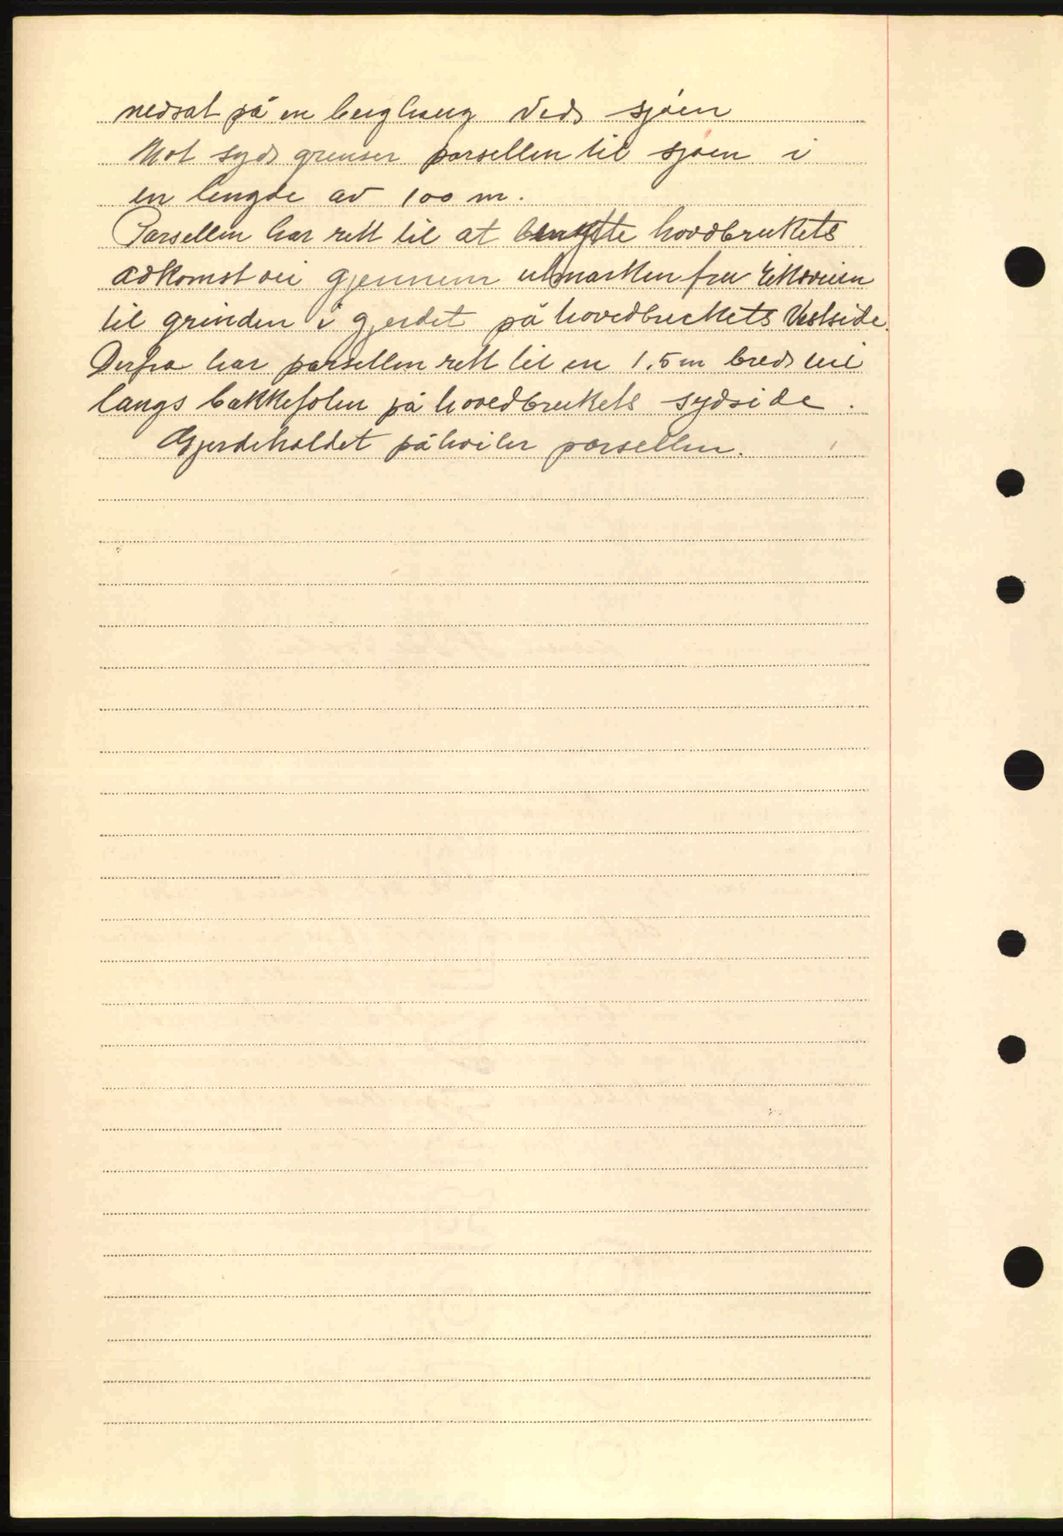 nedsat på en berghaug ved sjøen
Mot syd grenser parsellen til sjøen i
en lengde av 100 m.
Parsellen har rett til at benytte hovdbrukets
adkomst vei gjennem utmarken fra
til grinden i gjerdet på hovedbrukets Vestside.
Derfra har parsellen rett til en 1.5 m bred vei
langs bakkefoten på hovedbrukets sydside.
Gjerdeholdet påhviler parsellen.